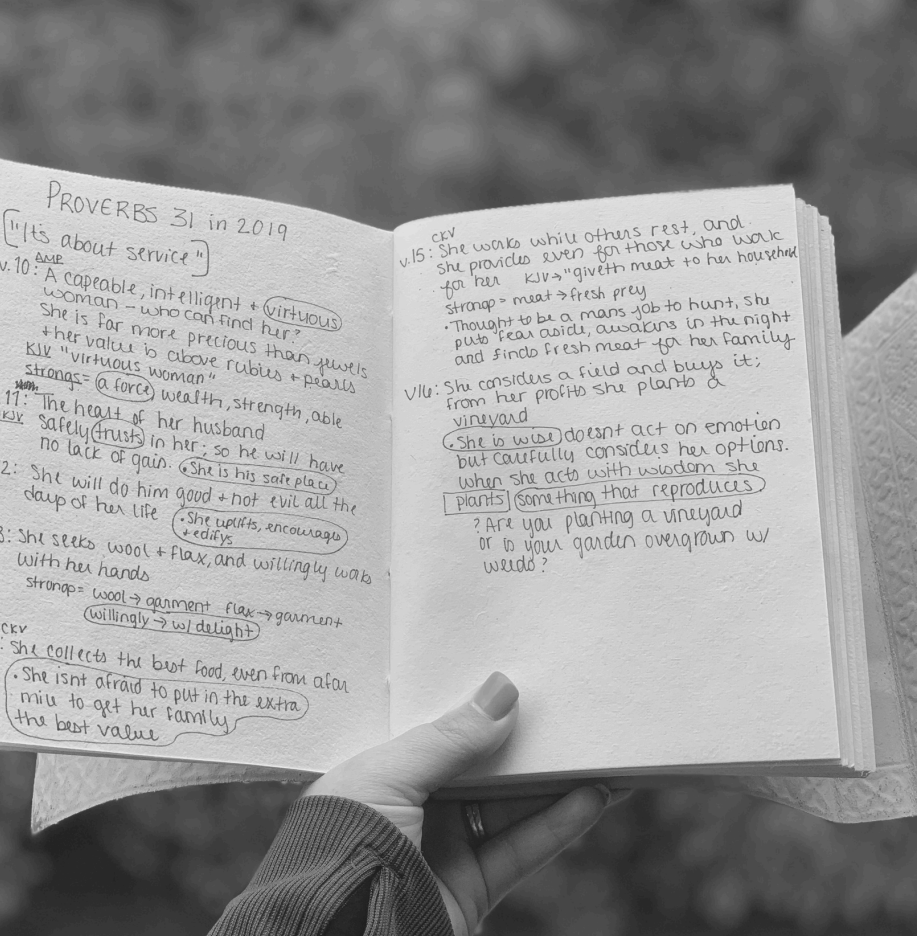 PROVERBS 31 in 2019
["It's about service"]
AMP
v.10: A capeable, intelligent + virtuous
woman - who can find her?
She is far more precious than jewels
+ her value is above rubies + pearls
KJV "virtuous woman"
strongs = a force wealth, strength, able
11: The heart of her husband
KJV safely trusts in her; so he will have
no lack of gain. • She is his safe place
2: She will do him good + not evil all the
days of her life • She uplifts, encourages
+ edifys
3: She seeks wool + flax, and willingly works
with her hands
strongs = wool → garment flax → garment
willingly → w/ delight
CKV
: She collects the best food, even from afar
• She isnt afraid to put in the extra
mile to get her family
the best value
CKV
v.15: She works while others rest, and
she provides even for those who work
for her KJV → "giveth meat to her household
strongs = meat → fresh prey
• Thought to be a mans job to hunt, she
puts fear aside, awakins in the night
and finds fresh meat for her family
V16: She considers a field and buys it;
from her profits she plants a
vineyard
• She is wise doesnt act on emotion
but carefully considers her options.
when she acts with wisdom she
plants something that reproduces
? Are you planting a vineyard
or is your garden overgrown w/
weeds?